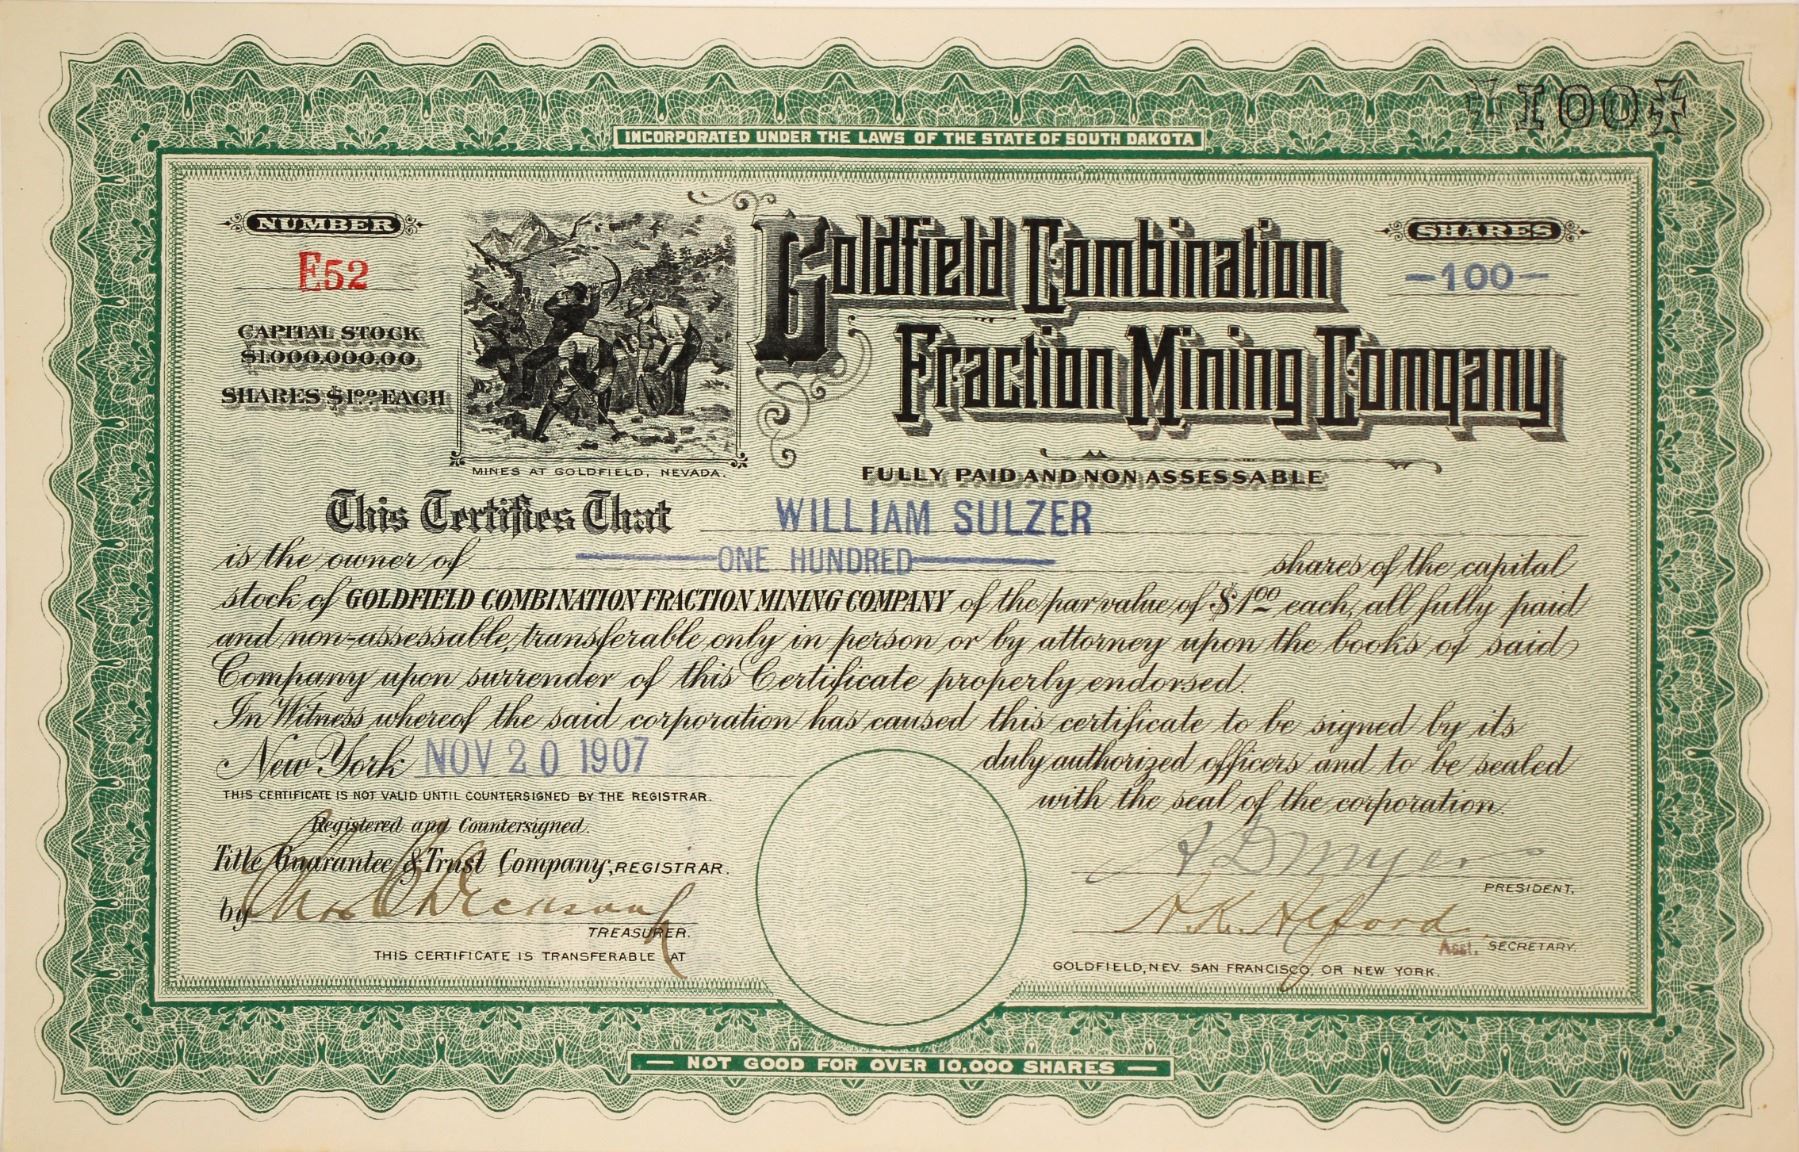 ‡100‡
INCORPORATED UNDER THE LAWS OF THE STATE OF SOUTH DAKOTA
NUMBER
E52
CAPITAL STOCK
$1,000,000.00
SHARES $1.00 EACH
MINES AT GOLDFIELD, NEVADA.
Goldfield Combination
Fraction Mining Company
SHARES
—100—
FULLY PAID AND NON ASSESSABLE
This Certifies That WILLIAM SULZER
is the owner of ONE HUNDRED shares of the capital
stock of GOLDFIELD COMBINATION FRACTION MINING COMPANY of the par value of $1.00 each, all fully paid
and non-assessable, transferable only in person or by attorney upon the books of said
Company upon surrender of this Certificate properly endorsed.
In Witness whereof the said corporation has caused this certificate to be signed by its
duly authorized officers and to be sealed
with the seal of the corporation.
New York NOV 20 1907
THIS CERTIFICATE IS NOT VALID UNTIL COUNTERSIGNED BY THE REGISTRAR.
Registered and Countersigned.
Title Guarantee & Trust Company, REGISTRAR.
by
TREASURER.
A D Myers
PRESIDENT.
A. K. Alford
Asst. SECRETARY.
THIS CERTIFICATE IS TRANSFERABLE AT GOLDFIELD, NEV. SAN FRANCISCO, OR NEW YORK.
— NOT GOOD FOR OVER 10,000 SHARES —